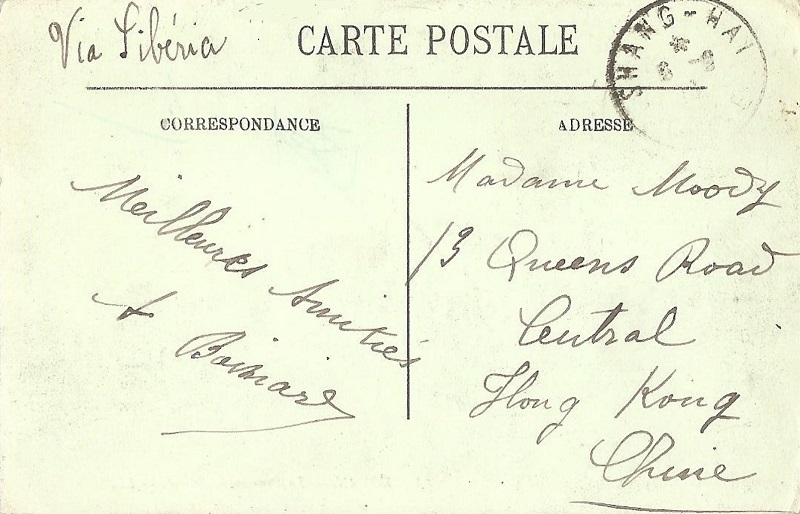 Via Sibéria
CARTE POSTALE
SHANG-HAI
CORRESPONDANCE
ADRESSE
Meilleures Amitiés
Madame Moody
13 Queens Road
Central
Hong Kong
Chine